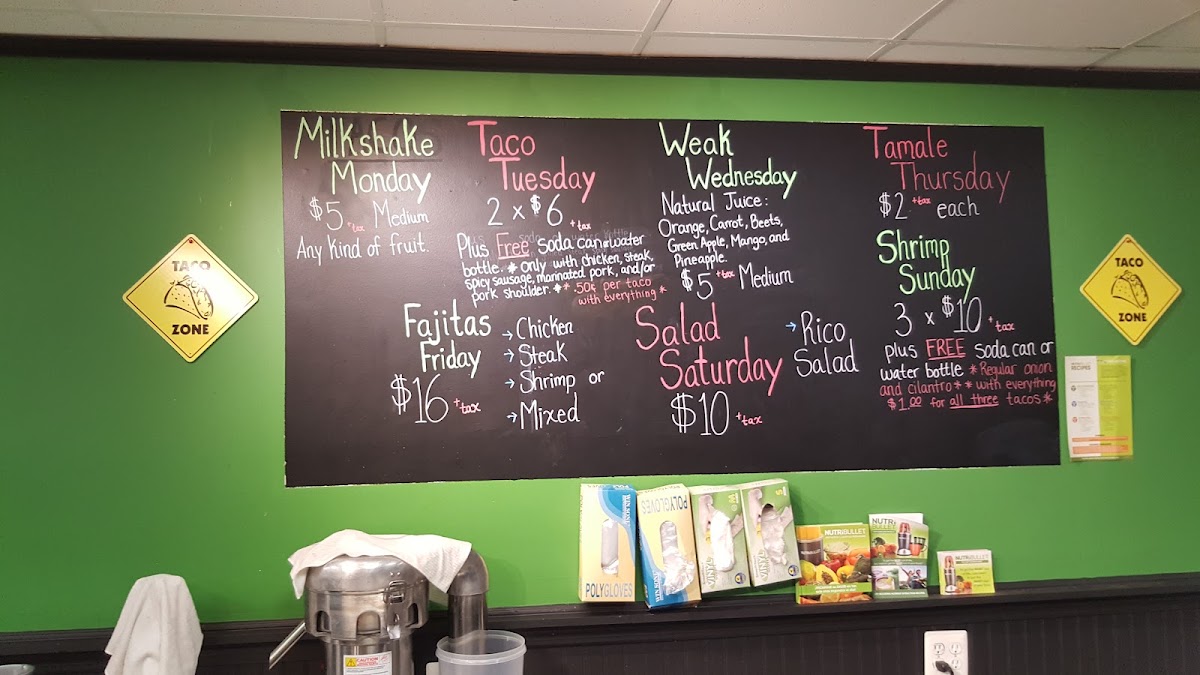 Milkshake
Monday
$5 +tax Medium
Any kind of fruit.
Taco
Tuesday
2 x $6 +tax
Plus Free soda can or water
bottle. * only with chicken, steak,
spicy sausage, marinated pork, and/or
pork shoulder. * * .50¢ per taco
with everything *
Weak
Wednesday
Natural Juice:
Orange, Carrot, Beets,
Green Apple, Mango, and
Pineapple.
$5 +tax Medium
Tamale
Thursday
$2 +tax each
Fajitas
Friday
$16 +tax
→ Chicken
→ Steak
→ Shrimp or
→ Mixed
Salad
Saturday
$10 +tax
→ Rico
Salad
Shrimp
Sunday
3 x $10 +tax
plus FREE soda can or
water bottle * Regular onion
and cilantro * * with everything
$1.00 for all three tacos *
TACO
ZONE
TACO
ZONE
RECIPES
POLYGLOVES
POLYGLOVES
VINYL
VINYL
NUTRIBULLET
NUTRI
BULLET
NUTRIBULLET
CAUTION